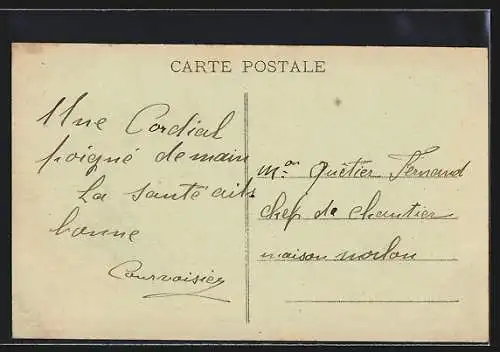 CARTE POSTALE
Une Cordial
poigné de main
La Santé
bonne
Courvoisier
Mon Quêtier Fernand
chef de chantier
maison